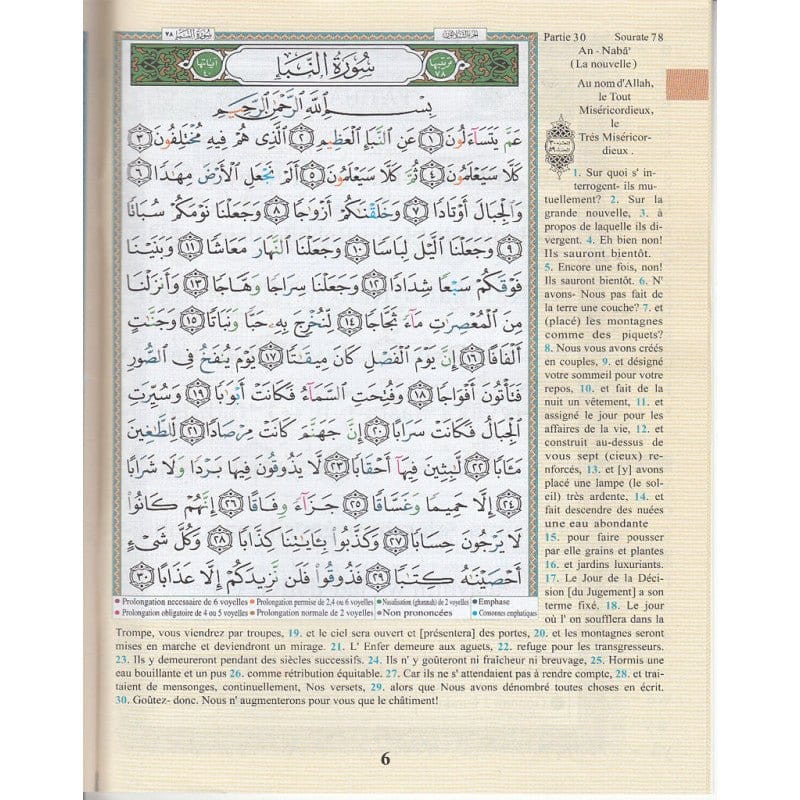 سُورَةُ النَّبَإِ ٧٨
الجزء الثلاثون
ترتيبها ٧٨
سُورَةُ النَّبَإِ
آياتها ٤٠
بِسْمِ اللَّهِ الرَّحْمَٰنِ الرَّحِيمِ
عَمَّ يَتَسَآءَلُونَ ١ عَنِ النَّبَإِ الْعَظِيمِ ٢ الَّذِى هُمْ فِيهِ مُخْتَلِفُونَ ٣
كَلَّا سَيَعْلَمُونَ ٤ ثُمَّ كَلَّا سَيَعْلَمُونَ ٥ أَلَمْ نَجْعَلِ الْأَرْضَ مِهَٰدًا ٦
وَالْجِبَالَ أَوْتَادًا ٧ وَخَلَقْنَٰكُمْ أَزْوَٰجًا ٨ وَجَعَلْنَا نَوْمَكُمْ سُبَاتًا
٩ وَجَعَلْنَا الَّيْلَ لِبَاسًا ١٠ وَجَعَلْنَا النَّهَارَ مَعَاشًا ١١ وَبَنَيْنَا
فَوْقَكُمْ سَبْعًا شِدَادًا ١٢ وَجَعَلْنَا سِرَاجًا وَهَّاجًا ١٣ وَأَنزَلْنَا
مِنَ الْمُعْصِرَٰتِ مَآءً ثَجَّاجًا ١٤ لِّنُخْرِجَ بِهِۦ حَبًّا وَنَبَاتًا ١٥ وَجَنَّٰتٍ
أَلْفَافًا ١٦ إِنَّ يَوْمَ الْفَصْلِ كَانَ مِيقَٰتًا ١٧ يَوْمَ يُنفَخُ فِى الصُّورِ
فَتَأْتُونَ أَفْوَاجًا ١٨ وَفُتِحَتِ السَّمَآءُ فَكَانَتْ أَبْوَٰبًا ١٩ وَسُيِّرَتِ
الْجِبَالُ فَكَانَتْ سَرَابًا ٢٠ إِنَّ جَهَنَّمَ كَانَتْ مِرْصَادًا ٢١ لِّلطَّٰغِينَ
مَـَٔابًا ٢٢ لَّٰبِثِينَ فِيهَآ أَحْقَابًا ٢٣ لَّا يَذُوقُونَ فِيهَا بَرْدًا وَلَا شَرَابًا
٢٤ إِلَّا حَمِيمًا وَغَسَّاقًا ٢٥ جَزَآءً وِفَاقًا ٢٦ إِنَّهُمْ كَانُوا۟
لَا يَرْجُونَ حِسَابًا ٢٧ وَكَذَّبُوا۟ بِـَٔايَٰتِنَا كِذَّابًا ٢٨ وَكُلَّ شَىْءٍ
أَحْصَيْنَٰهُ كِتَٰبًا ٢٩ فَذُوقُوا۟ فَلَن نَّزِيدَكُمْ إِلَّا عَذَابًا ٣٠
Prolongation necessaire de 6 voyelles Prolongation permise de 2,4 ou 6 voyelles Nasalisation (ghunnah) de 2 voyelles Emphase
Prolongation obligatoire de 4 ou 5 voyelles Prolongation normale de 2 voyelles Non prononcées Consonnes emphatiques
Partie 30 Sourate 78
An - Nabâ'
(La nouvelle)
Au nom d'Allah,
le Tout
Miséricordieux,
le
Très Miséricor-
dieux .
1. Sur quoi s' in-
terrogent- ils mu-
tuellement? 2. Sur la
grande nouvelle, 3. à
propos de laquelle ils di-
vergent. 4. Eh bien non!
Ils sauront bientôt.
5. Encore une fois, non!
Ils sauront bientôt. 6. N'
avons- Nous pas fait de
la terre une couche? 7. et
(placé) les montagnes
comme des piquets?
8. Nous vous avons créés
en couples, 9. et désigné
votre sommeil pour votre
repos, 10. et fait de la
nuit un vêtement, 11. et
assigné le jour pour les
affaires de la vie, 12. et
construit au-dessus de
vous sept (cieux) re-
nforcés, 13. et [y] avons
placé une lampe (le sol-
eil) très ardente, 14. et
fait descendre des nuées
une eau abondante
15. pour faire pousser
par elle grains et plantes
16. et jardins luxuriants.
17. Le Jour de la Déci-
sion [du Jugement] a son
terme fixé. 18. Le jour
où l' on soufflera dans la
Trompe, vous viendrez par troupes, 19. et le ciel sera ouvert et [présentera] des portes, 20. et les montagnes seront
mises en marche et deviendront un mirage. 21. L' Enfer demeure aux aguets, 22. refuge pour les transgresseurs.
23. Ils y demeureront pendant des siècles successifs. 24. Ils n' y goûteront ni fraîcheur ni breuvage, 25. Hormis une
eau bouillante et un pus 26. comme rétribution équitable. 27. Car ils ne s' attendaient pas à rendre compte, 28. et trai-
taient de mensonges, continuellement, Nos versets, 29. alors que Nous avons dénombré toutes choses en écrit.
30. Goûtez- donc. Nous n' augmenterons pour vous que le châtiment!
6